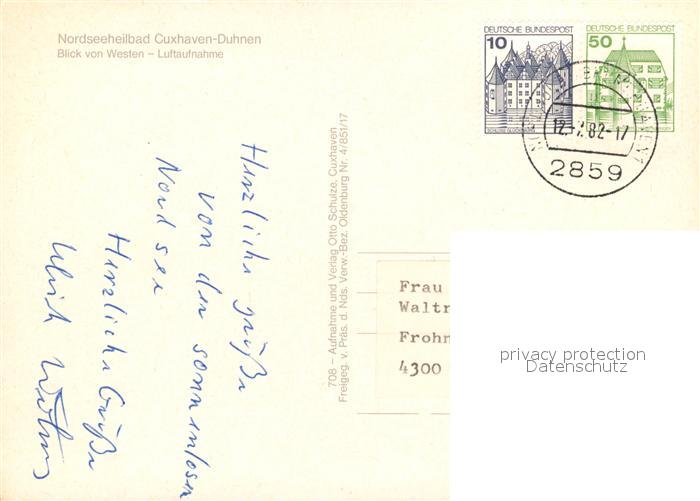 Nordseeheilbad Cuxhaven-Duhnen
Blick von Westen – Luftaufnahme
10
DEUTSCHE BUNDESPOST
50
DEUTSCHE BUNDESPOST
SCHLOSS GLÜCKSBURG
12.-7.82-17
2859
Herzliche Grüße
von der sonnenlosen
Nordsee
Herzliche Grüße
Ulrich
708 – Aufnahme und Verlag Otto Schulze, Cuxhaven
Freigeg. v. Präs. d. Nds. Verw.-Bez. Oldenburg Nr. 4/851/17
Frau
Waltr
Frohn
4300
privacy protection
Datenschutz